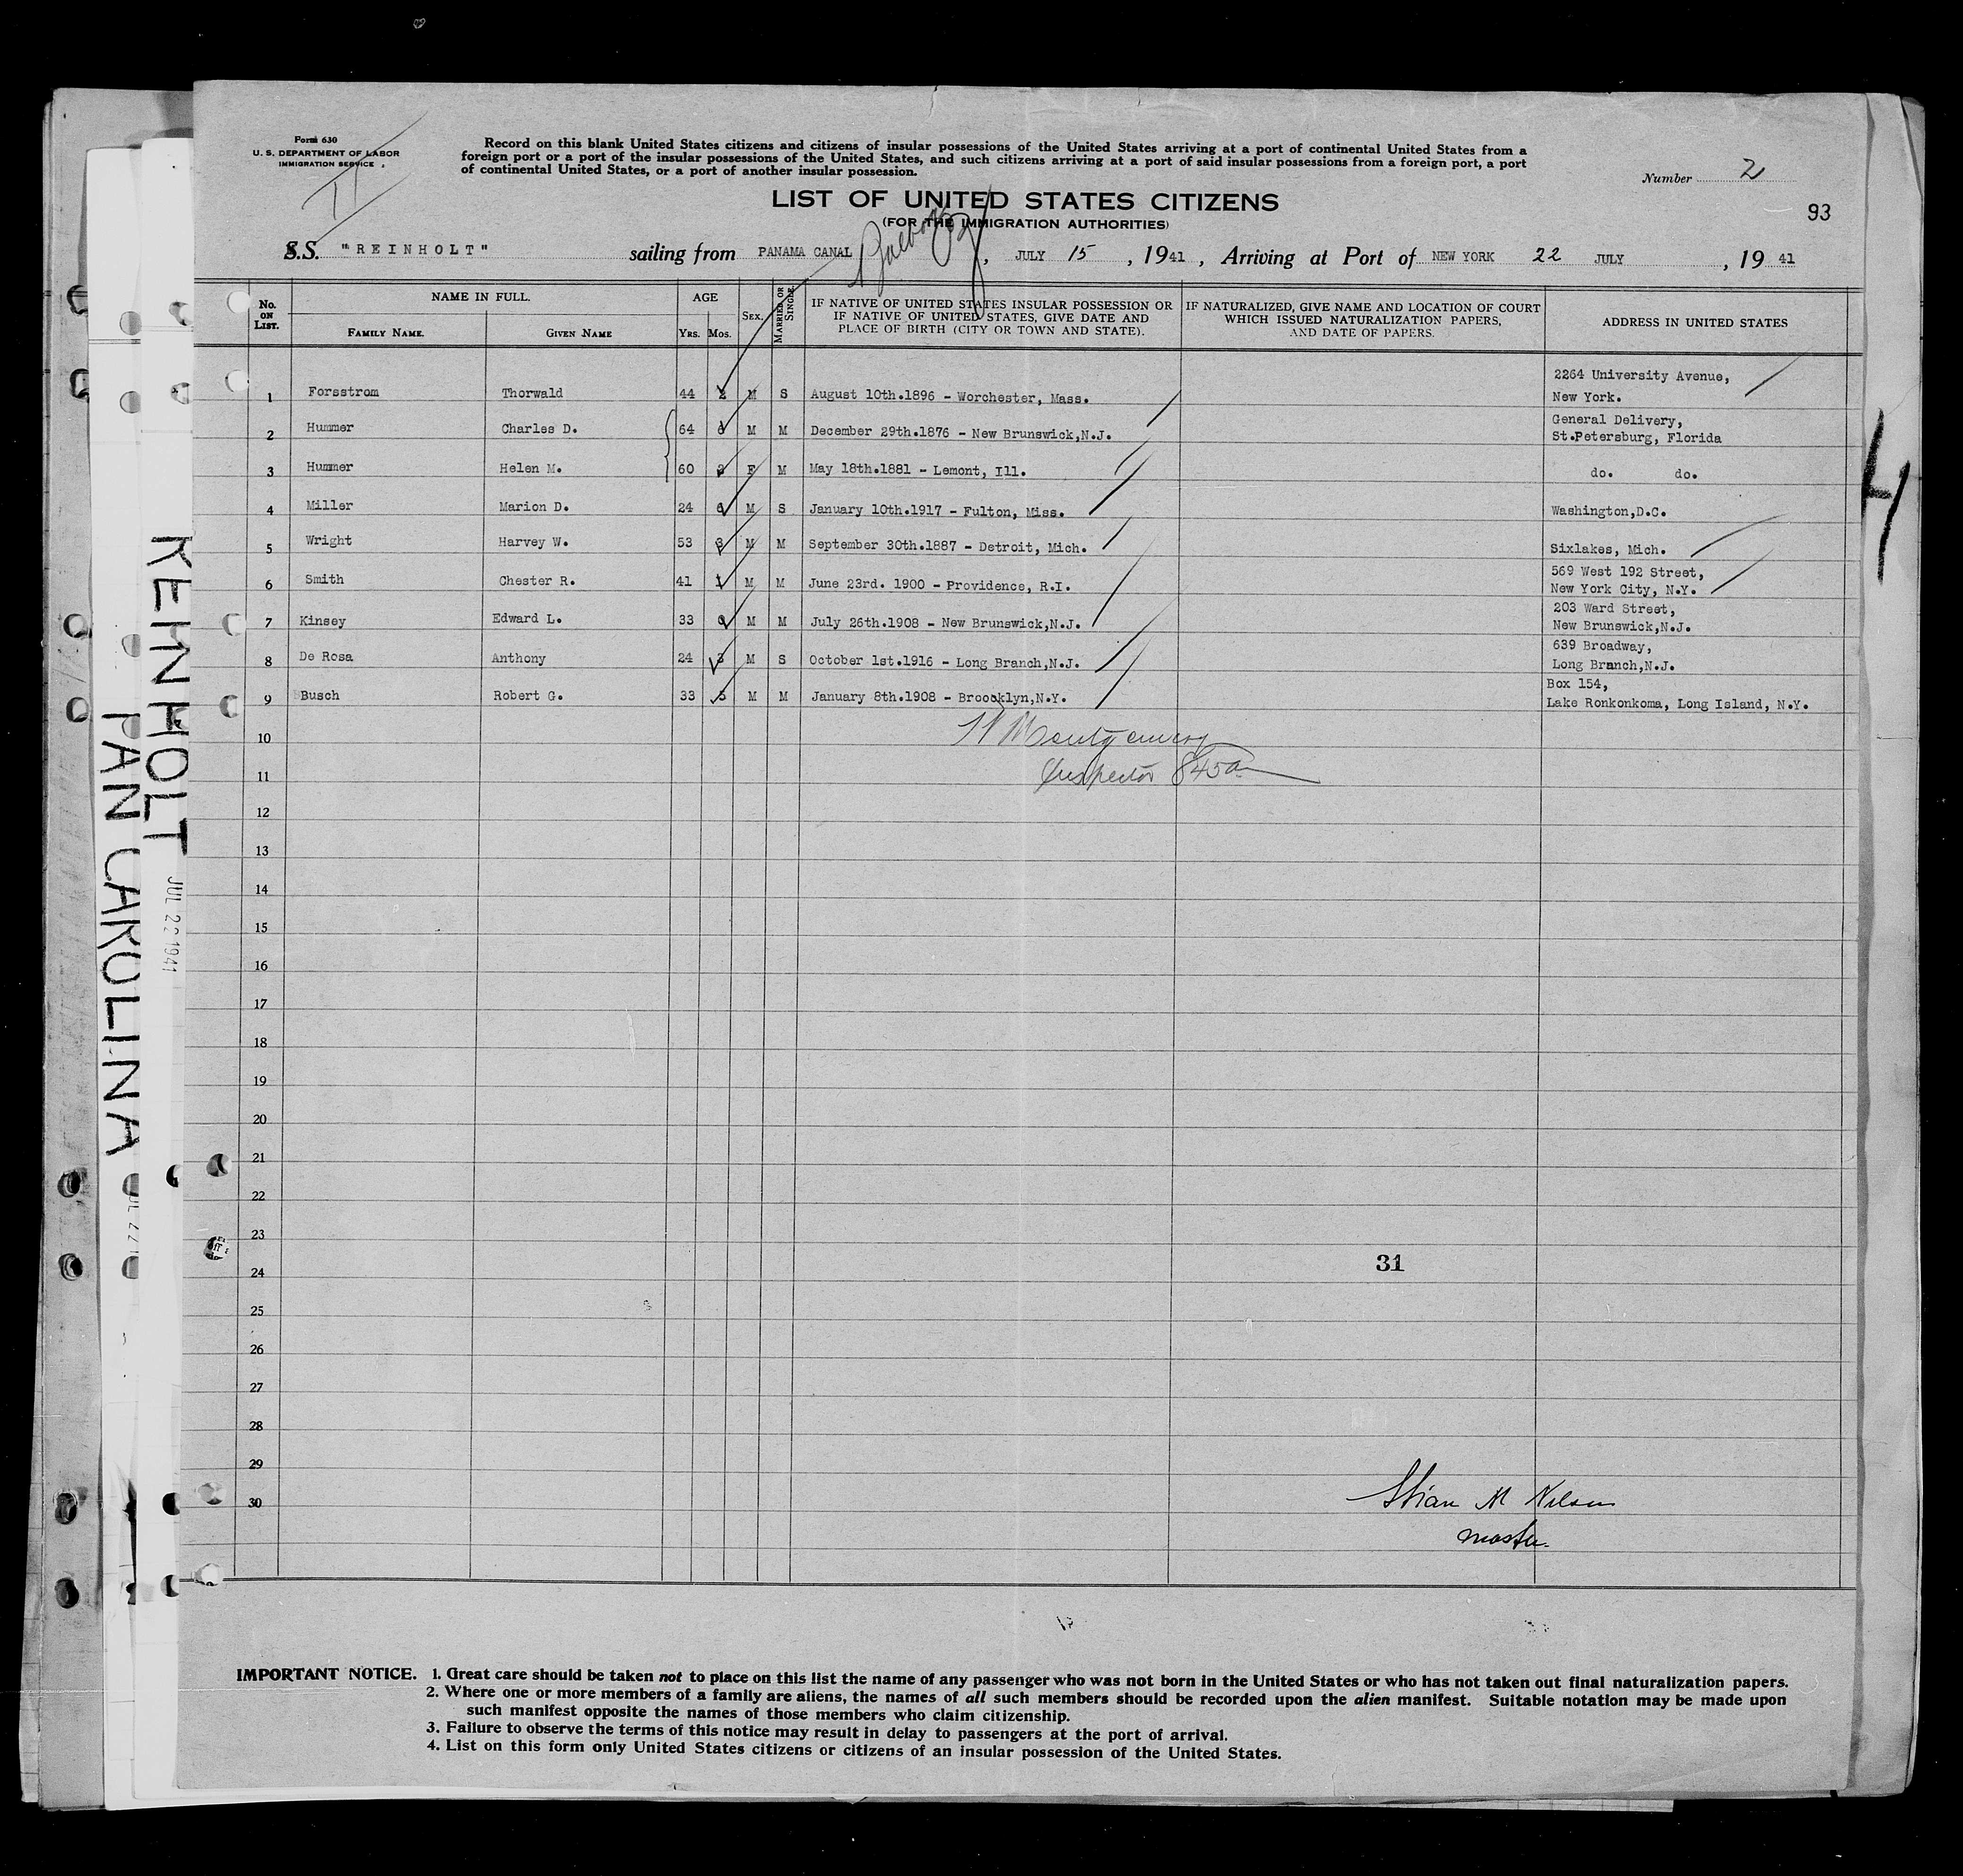 Form 630
U. S. DEPARTMENT OF LABOR
IMMIGRATION SERVICE
Record on this blank United States citizens and citizens of insular possessions of the United States arriving at a port of continental United States from a
foreign port or a port of the insular possessions of the United States, and such citizens arriving at a port of said insular possessions from a foreign port, a port
of continental United States, or a port of another insular possession.
Number 2
93
LIST OF UNITED STATES CITIZENS
(FOR THE IMMIGRATION AUTHORITIES)
S.S. "REINHOLT" sailing from PANAMA CANAL Balboa CZ, JULY 15, 1941, Arriving at Port of NEW YORK 22 JULY, 19 41
No. ON LIST. NAME IN FULL. AGE SEX. MARRIED OR SINGLE. IF NATIVE OF UNITED STATES INSULAR POSSESSION OR IF NATIVE OF UNITED STATES, GIVE DATE AND PLACE OF BIRTH (CITY OR TOWN AND STATE). IF NATURALIZED, GIVE NAME AND LOCATION OF COURT WHICH ISSUED NATURALIZATION PAPERS, AND DATE OF PAPERS. ADDRESS IN UNITED STATES
FAMILY NAME. GIVEN NAME YRS. MOS.
1 Forsstrom Thorwald 44 M S August 10th.1896 - Worchester, Mass. 2264 University Avenue,
New York.
2 Hummer Charles D. 64 6 M M December 29th.1876 - New Brunswick,N.J. General Delivery,
St.Petersburg, Florida
3 Hummer Helen M. 60 2 F M May 18th.1881 - Lemont, Ill. do. do.
4 Miller Marion D. 24 6 M S January 10th.1917 - Fulton, Miss. Washington,D.C.
5 Wright Harvey W. 53 M M September 30th.1887 - Detroit, Mich. Sixlakes, Mich.
6 Smith Chester R. 41 1 M M June 23rd. 1900 - Providence, R.I. 569 West 192 Street,
New York City, N.Y.
7 Kinsey Edward L. 33 M M July 26th.1908 - New Brunswick,N.J. 203 Ward Street,
New Brunswick,N.J.
8 De Rosa Anthony 24 3 M S October 1st.1916 - Long Branch,N.J. 639 Broadway,
Long Branch,N.J.
9 Busch Robert G. 33 5 M M January 8th.1908 - Broocklyn,N.Y. Box 154,
Lake Ronkonkoma, Long Island, N.Y.
10 Montgomery
11 Inspector 845a
12
13
14
15
16
17
18
19
20
21
22
23
31
24
25
26
27
28
29
30
Stian M Nilsen
Master.
IMPORTANT NOTICE. 1. Great care should be taken not to place on this list the name of any passenger who was not born in the United States or who has not taken out final naturalization papers.
2. Where one or more members of a family are aliens, the names of all such members should be recorded upon the alien manifest. Suitable notation may be made upon
such manifest opposite the names of those members who claim citizenship.
3. Failure to observe the terms of this notice may result in delay to passengers at the port of arrival.
4. List on this form only United States citizens or citizens of an insular possession of the United States.
REINHOLT
JUL 22 1941
PAN CAROLINA